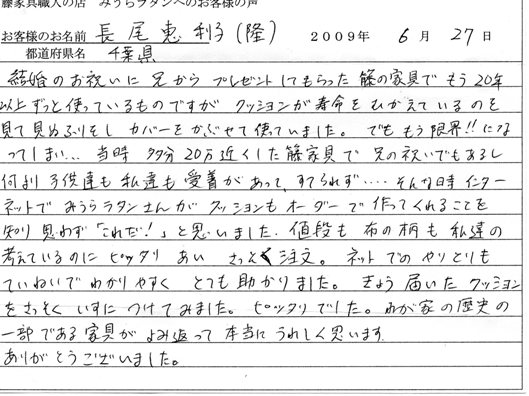 藤家具職人の店 みうらラタンへのお客様の声
お客様のお名前 長尾恵利子(隆) 2009年 6月 27日
都道府県名 千葉県
結婚のお祝いに兄からプレゼントしてもらった籐の家具でもう20年
以上ずっと使っているものですがクッションが寿命をむかえているのを
見て見ぬふりをし カバーをかぶせて使っていました。でももう限界!!にな
ってしまい… 当時 多分20万近くした籐家具で兄の祝いでもあるし
何より子供達も私達も愛着があって、すてられず‥‥そんな時インター
ネットでみうらラタンさんがクッションもオーダーで作ってくれることを
知り思わず「これだ!」と思いました。値段も布の柄も私達の
考えているのにピッタリあい さっそく注文。ネットでのやりとりも
ていねいでわかりやすく とても助かりました。きょう届いたクッション
をさっそくいすにつけてみました。ピッタリでした。わが家の歴史の
一部である家具がよみ返って本当にうれしく思います。
ありがとうございました。